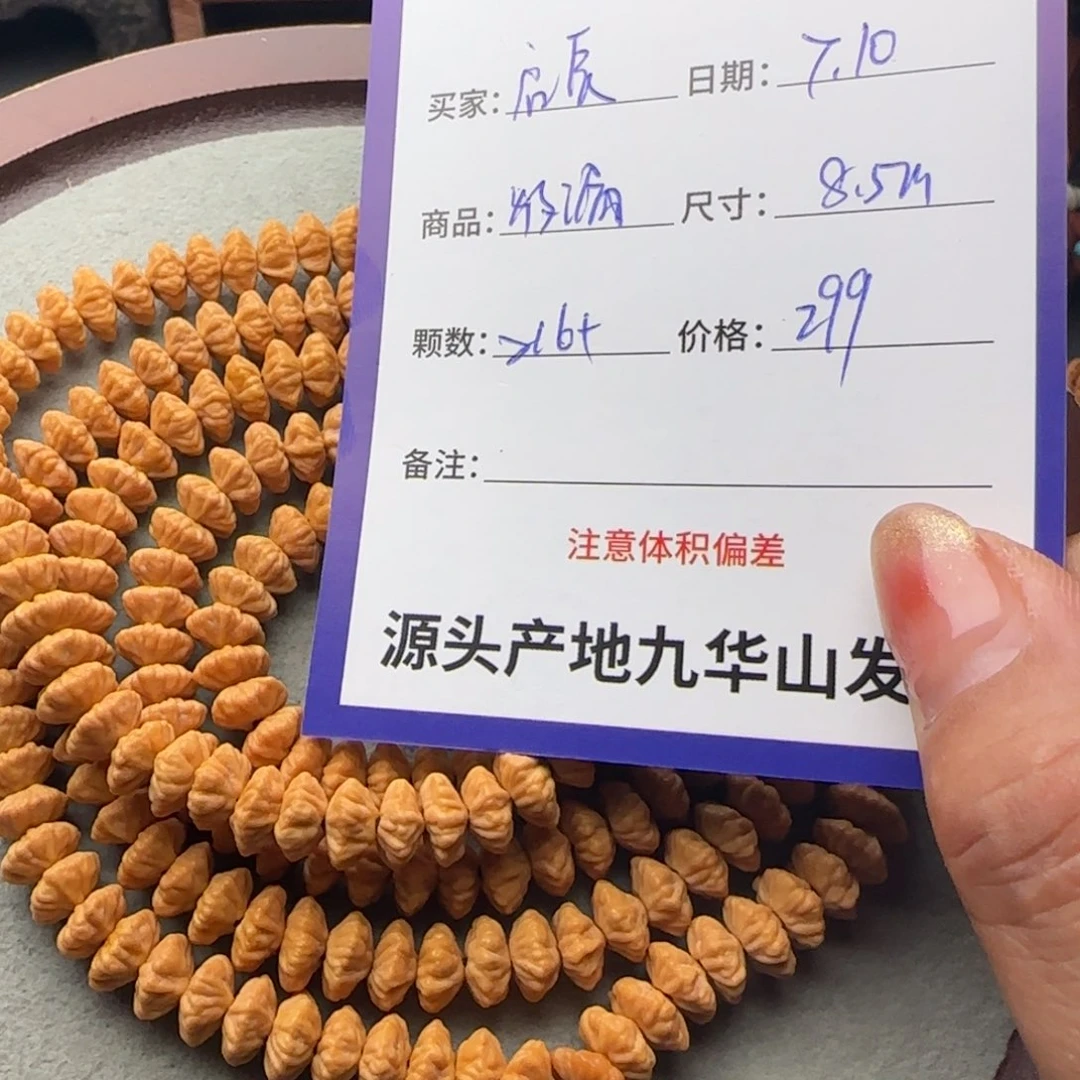 买家: 启辰 日期: 7.10
商品: 尺寸: 8.5m
颗数: 216+ 价格: 299
备注:
注意体积偏差
源头产地九华山发